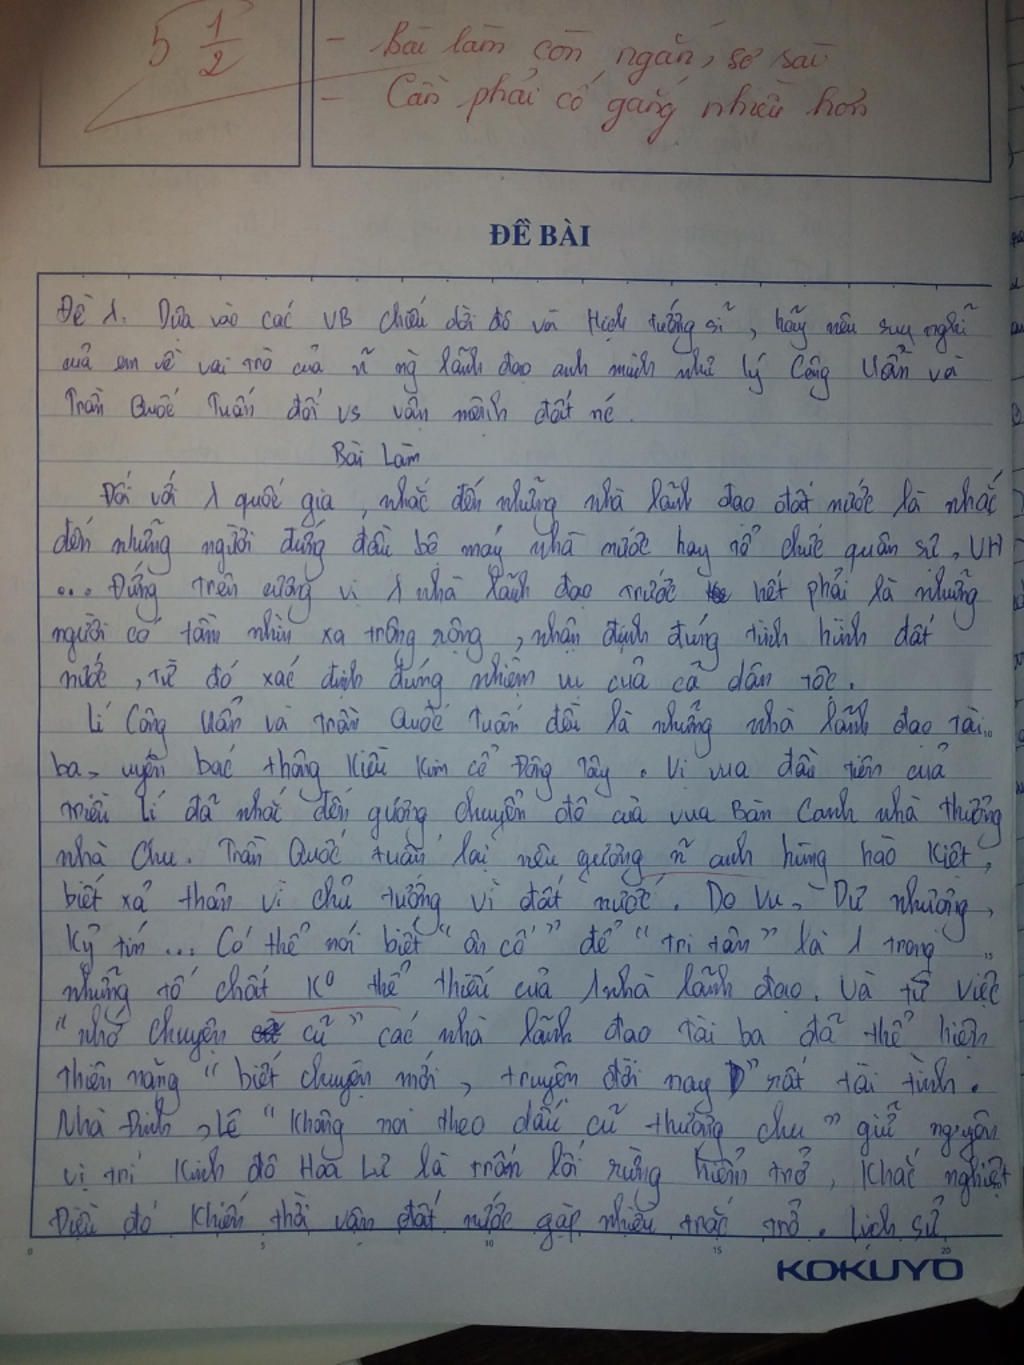 5 1/2
- Bài làm còn ngắn, sơ sài
- Cần phải cố gắng nhiều hơn
ĐỀ BÀI
Đề 1. Dựa vào các VB chiếu dời đô và Hịch tướng sĩ, hãy nêu suy nghĩ
của em về vai trò của ~n ng lãnh đạo anh minh như lý Công Uẩn và
Trần Quốc Tuấn đối vs vận mệnh đất nc.
Bài Làm
Đối với 1 quốc gia, nhắc đến những nhà lãnh đạo đất nước là nhắc
đến những người đứng đầu bộ máy nhà nước hay tổ chức quân sự, VH
... Đứng trên cương vị 1 nhà lãnh đạo trước hết phải là những
người có tầm nhìn xa trông rộng, nhận định đúng tình hình đất
nước, từ đó xác định đúng nhiệm vụ của cả dân tộc.
Lí Công Uẩn và Trần Quốc Tuấn đều là những nhà lãnh đạo tài
ba, uyên bác thông kiêu kim cổ Đông Tây. Vị vua đầu tiên của
triều Lí đã nhắc đến gương chuyển đô của vua Bàn Canh nhà thương
nhà Chu. Trần Quốc tuấn lại nêu gương ~n anh hùng hào kiệt,
biết xả thân vì chủ tướng vì đất nước. Do Vu, Dự nhượng,
Kỷ tín ... Có thể nói biết "ôn cố" để "tri tân" là 1 trong
những tố chất K° thể thiếu của 1 nhà lãnh đạo. Và từ việc
"nhớ chuyện cũ" các nhà lãnh đạo tài ba đã thể hiện
thiên năng "biết chuyện mới, truyện đời nay" rất tài tình.
Nhà Đinh, Lê "không noi theo dấu cũ thương chu" giữ nguyên
vị trí kinh đô Hoa Lư là trốn lối rừng hiểm trở, khắc nghiệt
Điều đó khiến thời vận đất nước gặp nhiều trắc trở. Lịch sử
0 5 10 15 20
KOKUYO